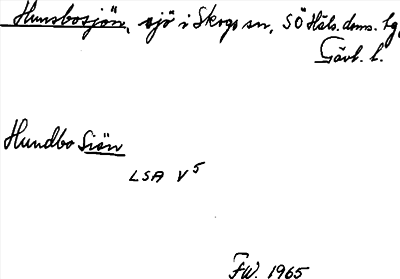 Hunsbosjön, sjö i Skogs sn, SÖ Häls. doms. hg,
Gävl. l.
Hundbo Siön
LSA V5
FW. 1965